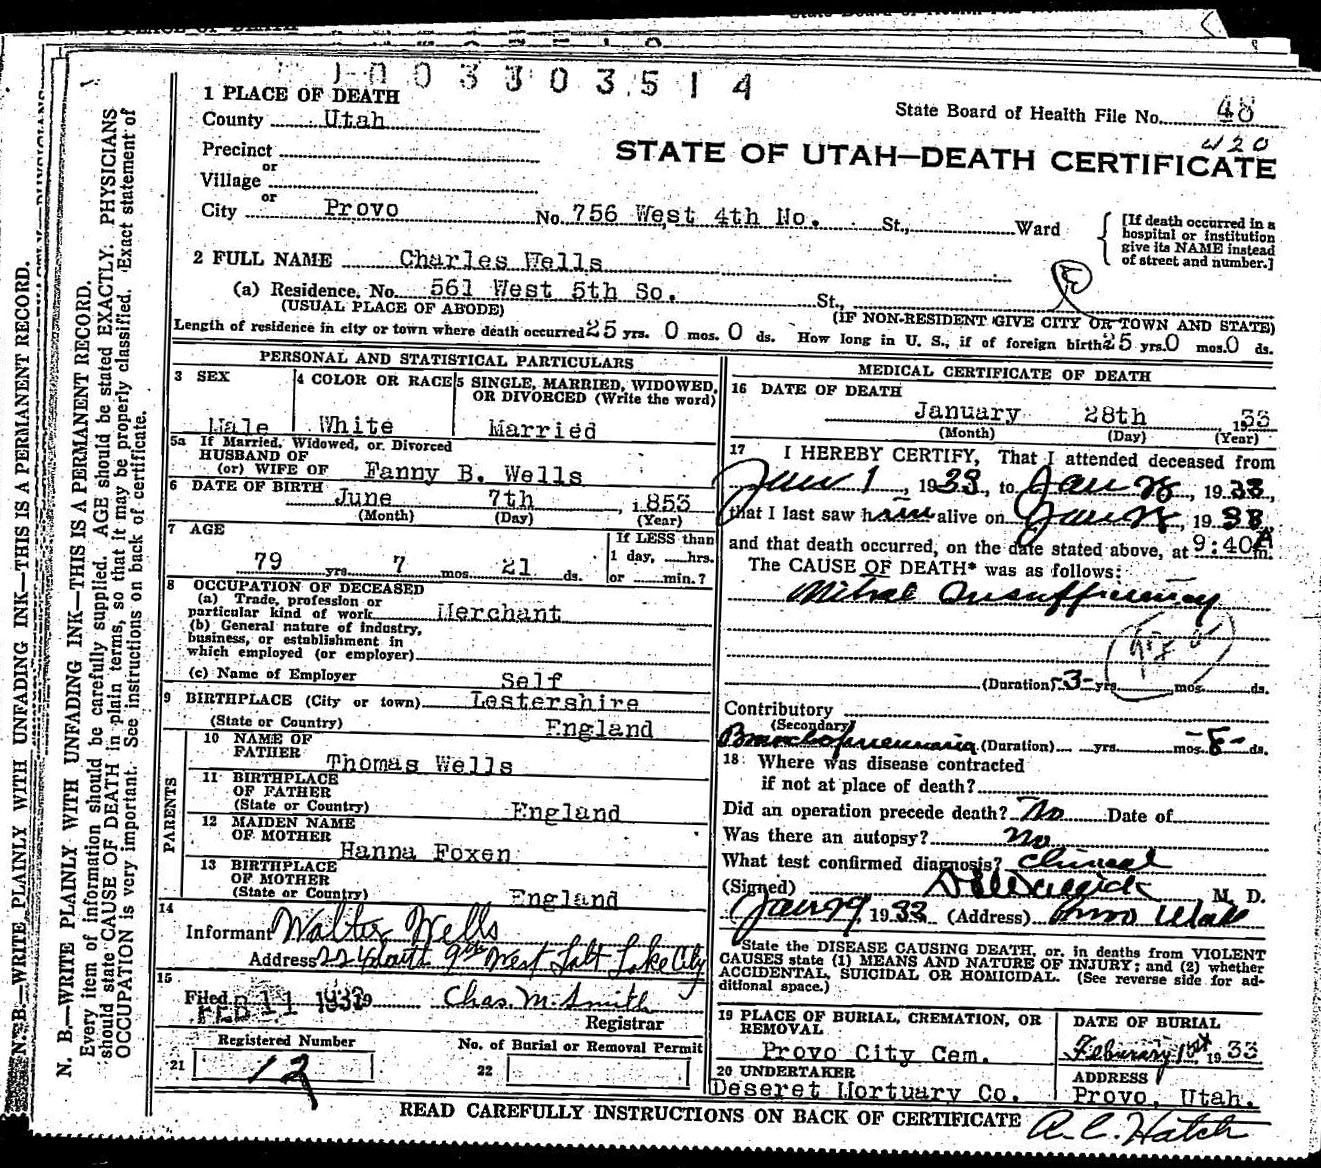 PLACE OF DEATH
1003303514
1 PLACE OF DEATH
State Board of Health File No. 48
420
County Utah
STATE OF UTAH—DEATH CERTIFICATE
Precinct
or
Village
or
City Provo No. 756 West 4th No. St., Ward
[If death occurred in a hospital or institution give its NAME instead of street and number.]
2 FULL NAME Charles Wells
(a) Residence, No. 561 West 5th So. St.,
(USUAL PLACE OF ABODE) (IF NON-RESIDENT GIVE CITY OR TOWN AND STATE)
Length of residence in city or town where death occurred 25 yrs. 0 mos. 0 ds. How long in U. S., if of foreign birth 25 yrs. 0 mos. 0 ds.
PERSONAL AND STATISTICAL PARTICULARS
3 SEX
Male
4 COLOR OR RACE
White
5 SINGLE, MARRIED, WIDOWED, OR DIVORCED (Write the word)
Married
5a If Married, Widowed, or Divorced
HUSBAND OF
(or) WIFE OF Fanny B. Wells
6 DATE OF BIRTH June 7th, 1853
(Month) (Day) (Year)
7 AGE
79 yrs. 7 mos. 21 ds.
If LESS than
1 day, hrs.
or min.?
8 OCCUPATION OF DECEASED
(a) Trade, profession or
particular kind of work Merchant
(b) General nature of industry,
business, or establishment in
which employed (or employer)
(c) Name of Employer Self
9 BIRTHPLACE (City or town) Lestershire
(State or Country) England
PARENTS
10 NAME OF
FATHER Thomas Wells
11 BIRTHPLACE
OF FATHER
(State or Country) England
12 MAIDEN NAME
OF MOTHER
Hanna Foxen
13 BIRTHPLACE
OF MOTHER
(State or Country) England
14
Informant Walter Wells
Address 224 South 9th West Salt Lake City
15
Filed FEB 11 1933 19 Chas. M. Smith
Registrar
Registered Number No. of Burial or Removal Permit
21 12 22
MEDICAL CERTIFICATE OF DEATH
16 DATE OF DEATH
January 28th 1933
(Month) (Day) (Year)
17 I HEREBY CERTIFY, That I attended deceased from
1, 1933, to Jan 28, 1933,
that I last saw him alive on Jan 28, 1933,
and that death occurred, on the date stated above, at 9:40A m.
The CAUSE OF DEATH* was as follows:
Mitral Insufficiency
(Duration) 3 yrs. mos. ds.
Contributory
(Secondary)
Bronchopneumonia (Duration) yrs. mos. 8 ds.
18 Where was disease contracted
if not at place of death?
Did an operation precede death? No Date of
Was there an autopsy? No
What test confirmed diagnosis? Clinical
(Signed) M. D.
Jan 29, 1933 (Address) Provo Utah
*State the DISEASE CAUSING DEATH, or, in deaths from VIOLENT
CAUSES state (1) MEANS AND NATURE OF INJURY; and (2) whether
ACCIDENTAL, SUICIDAL OR HOMICIDAL. (See reverse side for ad-
ditional space.)
19 PLACE OF BURIAL, CREMATION, OR
REMOVAL
Provo City Cem.
DATE OF BURIAL
Feburary 1st, 1933
20 UNDERTAKER
Deseret Mortuary Co.
ADDRESS
Provo, Utah.
READ CAREFULLY INSTRUCTIONS ON BACK OF CERTIFICATE
A. C. Hatch
N. B.—WRITE PLAINLY WITH UNFADING INK—THIS IS A PERMANENT RECORD.
N. B.—WRITE PLAINLY WITH UNFADING INK—THIS IS A PERMANENT RECORD.
Every item of information should be carefully supplied. AGE should be stated EXACTLY. PHYSICIANS
should state CAUSE OF DEATH in plain terms, so that it may be properly classified. Exact statement of
OCCUPATION is very important. See instructions on back of certificate.